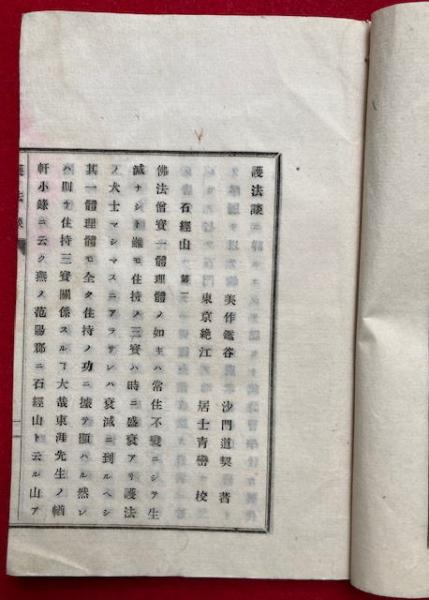 護法談
美作鑑谷 沙門道契 著
東京絶江 居士靑巒 校
石經山 第一
佛法僧寳一體理體ノ如キハ常住不變ニシテ生
滅ナシト雖モ住持ノ三寳ハ時ニ盛衰アリ護法
ノ大士マシマスニアラサレハ衰滅ニ到ルヘシ
其一體理體モ全タ住持ノ功ニ據テ顯ハル然レ
ハ則チ住持三寳關係スルヿ大哉東涯先生ノ輶
軒小錄ニ云ク燕ノ范陽郡ニ石經山ト云ル山ア
護法談
一